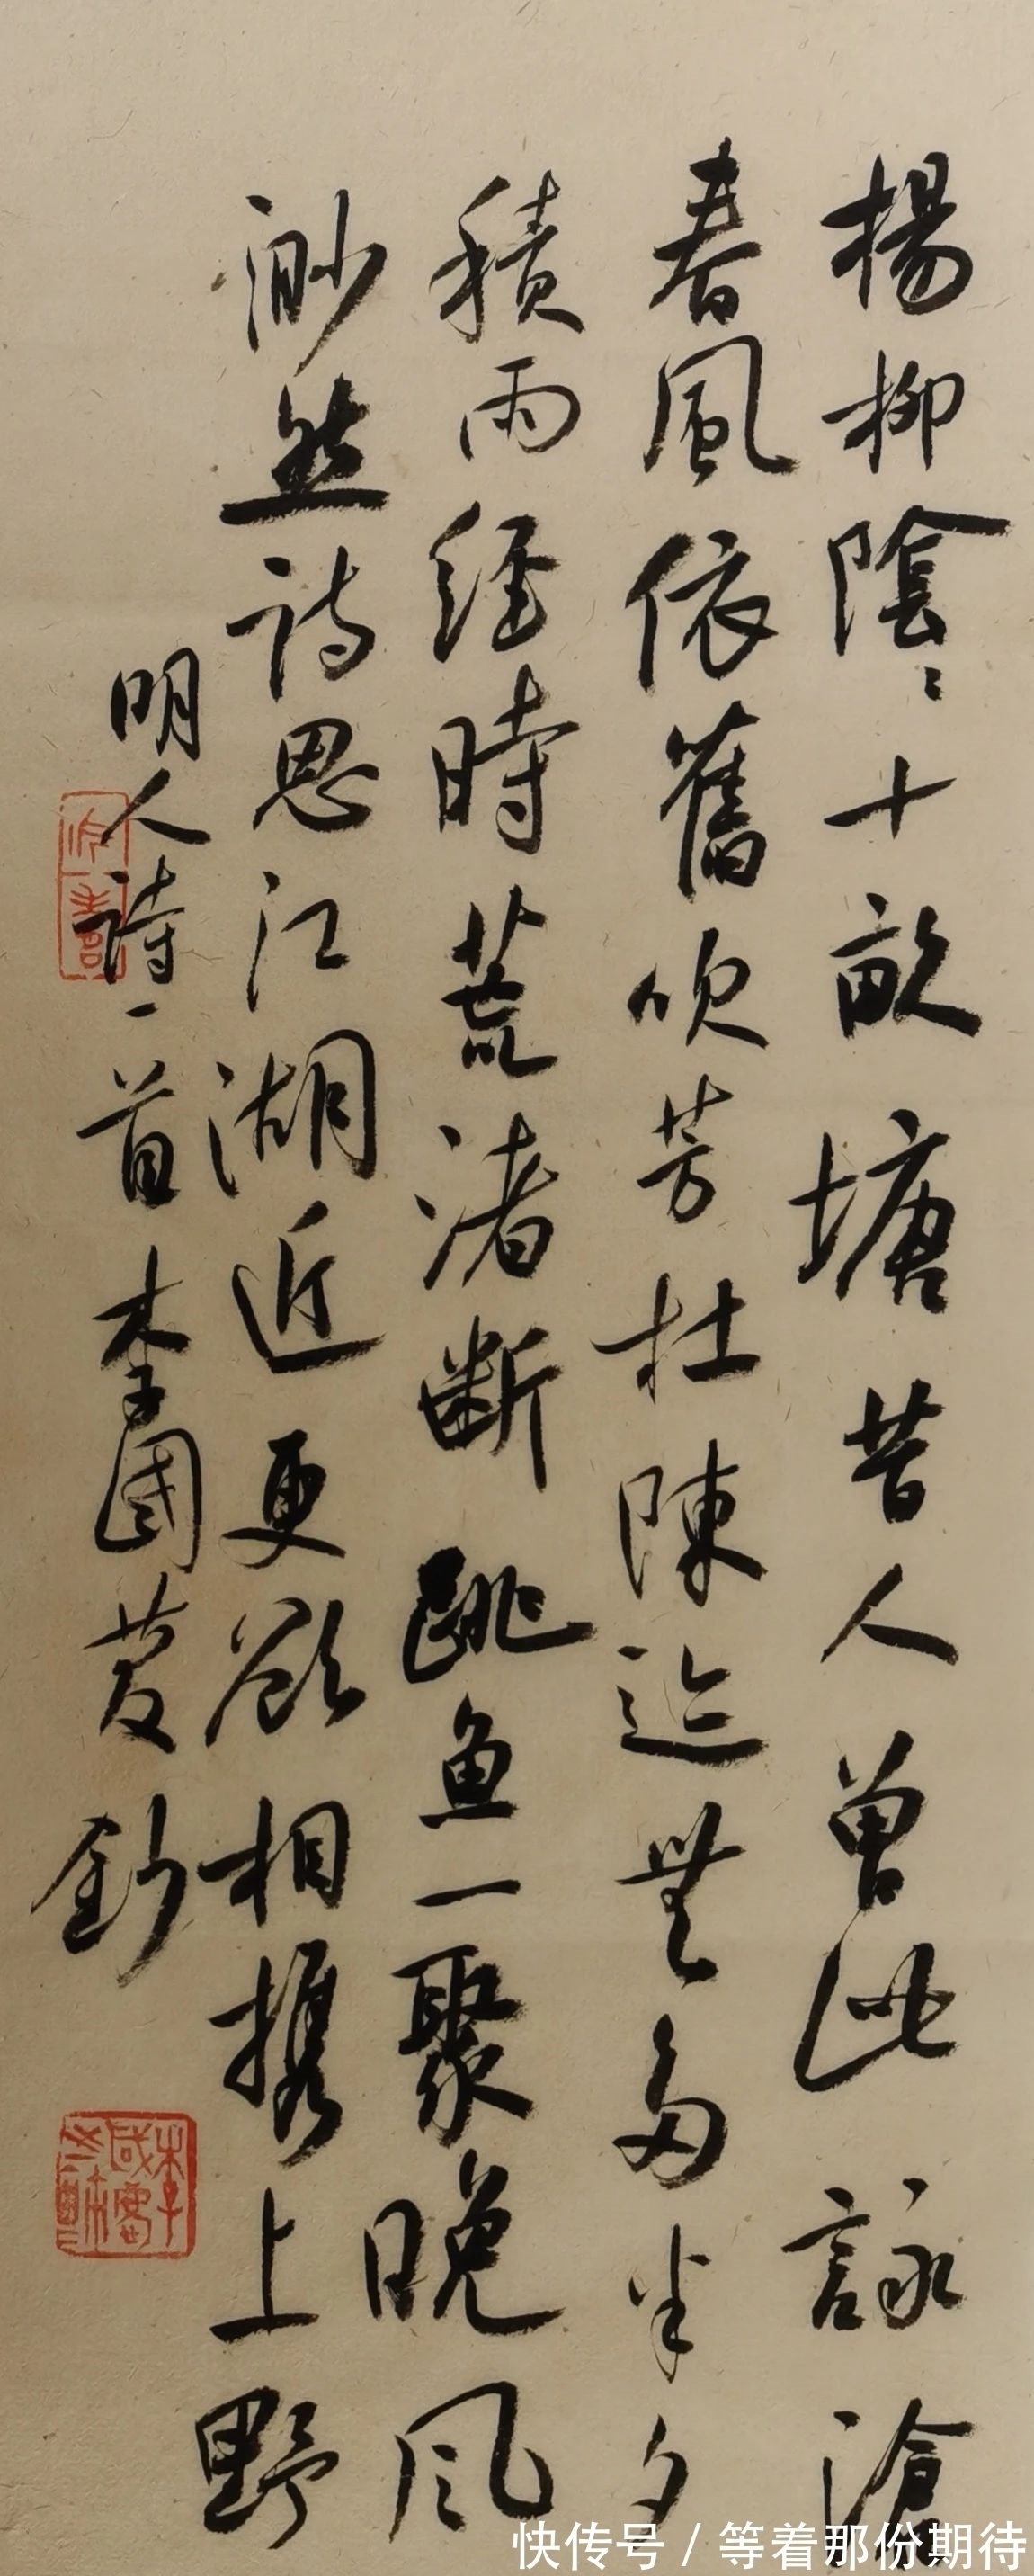 楊柳陰〻十畝塘昔人曾此詠滄
春風依舊吹芳杜陳迹無多半夕
積雨經時荒渚斷跳魚一聚晚風
渺然詩思江湖近更欲相攜上野
明人詩一首李國夢鈔
快传号/等着那份期待